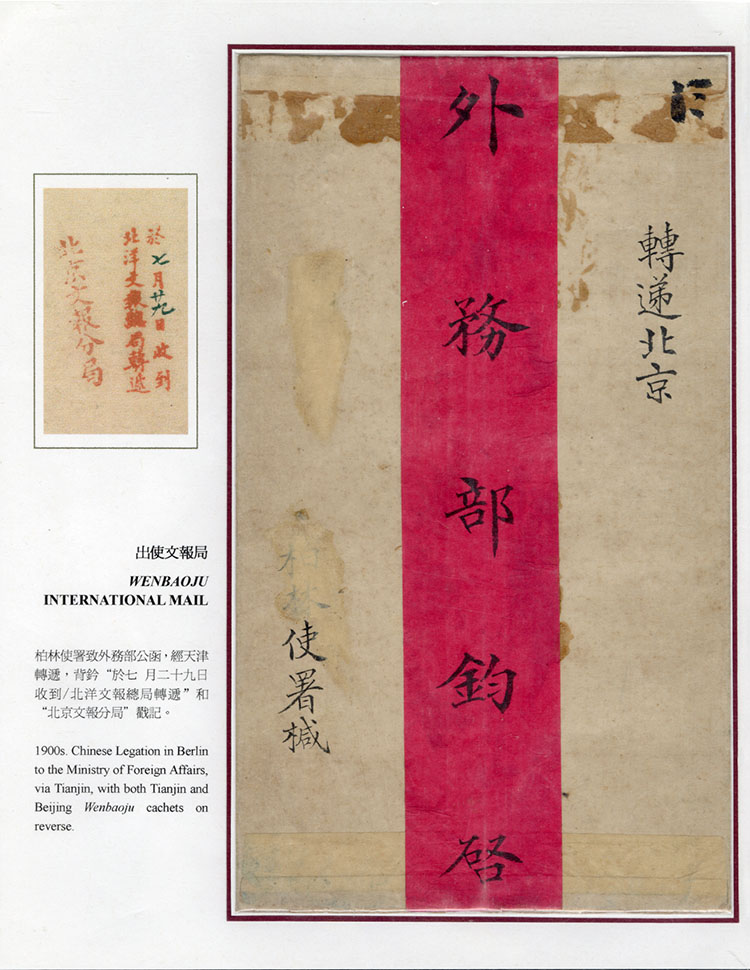 於七月廿九日收到
北洋文報總局轉遞
北京文報分局
出使文報局
WENBAOJU
INTERNATIONAL MAIL
柏林使署致外務部公函，經天津
轉遞，背鈐“於七 月二十九日
收到/北洋文報總局轉遞”和
“北京文報分局”戳記。
1900s. Chinese Legation in Berlin
to the Ministry of Foreign Affairs,
via Tianjin, with both Tianjin and
Beijing Wenbaoju cachets on
reverse.
轉遞北京
外務部鈞啓
柏林使署椷